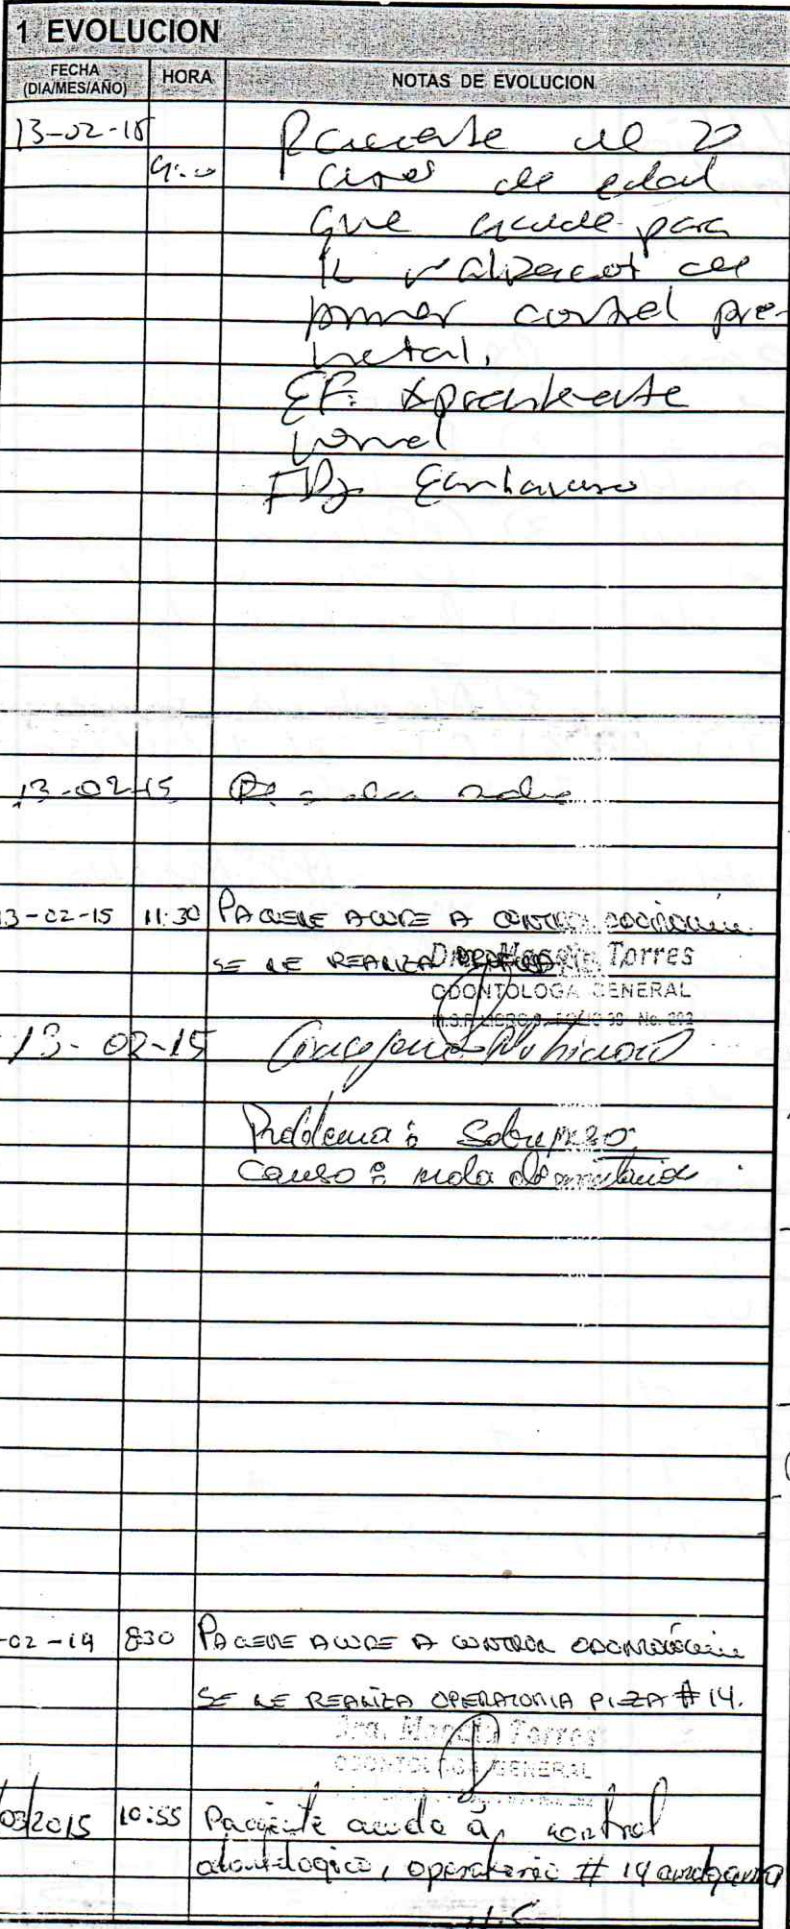 1 EVOLUCION
FECHA (DIA/MES/AÑO) HORA NOTAS DE EVOLUCION
13-02-15 Paciente de 20
años de edad
que acude para
realizacot del
primer control pre-
natal.
EF: Aparentemente
normal
IDg Embarazo
13-02-15
13-02-15 11:30 PACIENTE ACUDE A CONTROL
SE LE REALIZA
Torres
ODONTOLOGA GENERAL
13-02-15
Problema: Sobrepeso
Causa: mala alimentación
-02-19 8:30 PACIENTE ACUDE A CONTROL ODONTOLÓGICO
SE LE REALIZA OPERATORIA PIEZA #14.
Dra. Torres
ODONTOLOGA GENERAL
/03/2015 10:55 Paciente acude a control
odontologico, operatoria # 14